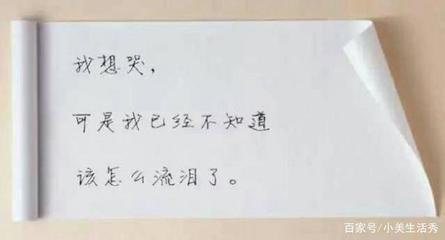 我想哭，
可是我已经不知道
该怎么流泪了。
百家号/小美生活秀